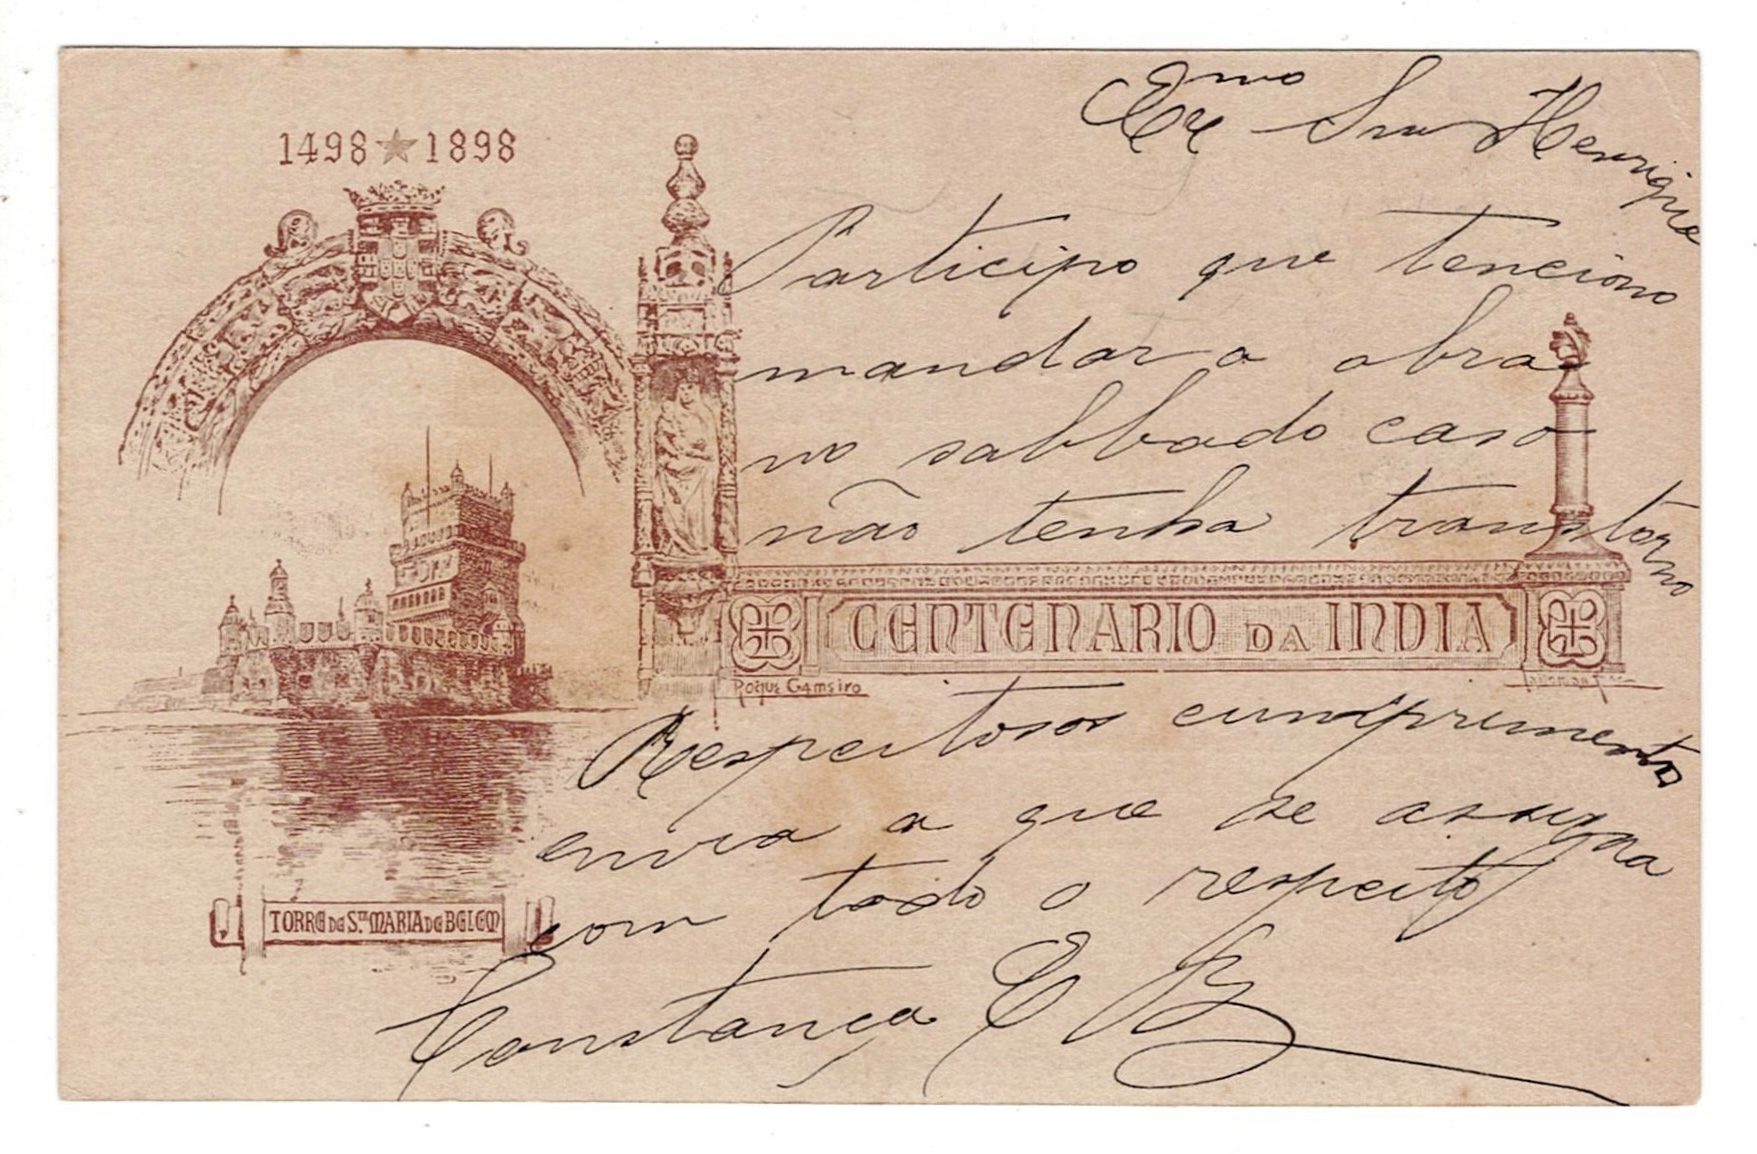 1498 ★ 1898
Exmo Snr Henrique
Participo que tenciono
mandar a obra
no sabbado caso
não tenha transtorno
CENTENARIO DA INDIA
Roque Gameiro
Respeitosos cumprimentos
envia a que se assigna
com todo o respeito
TORRE DE STA MARIA DE BELEM
Constança E B